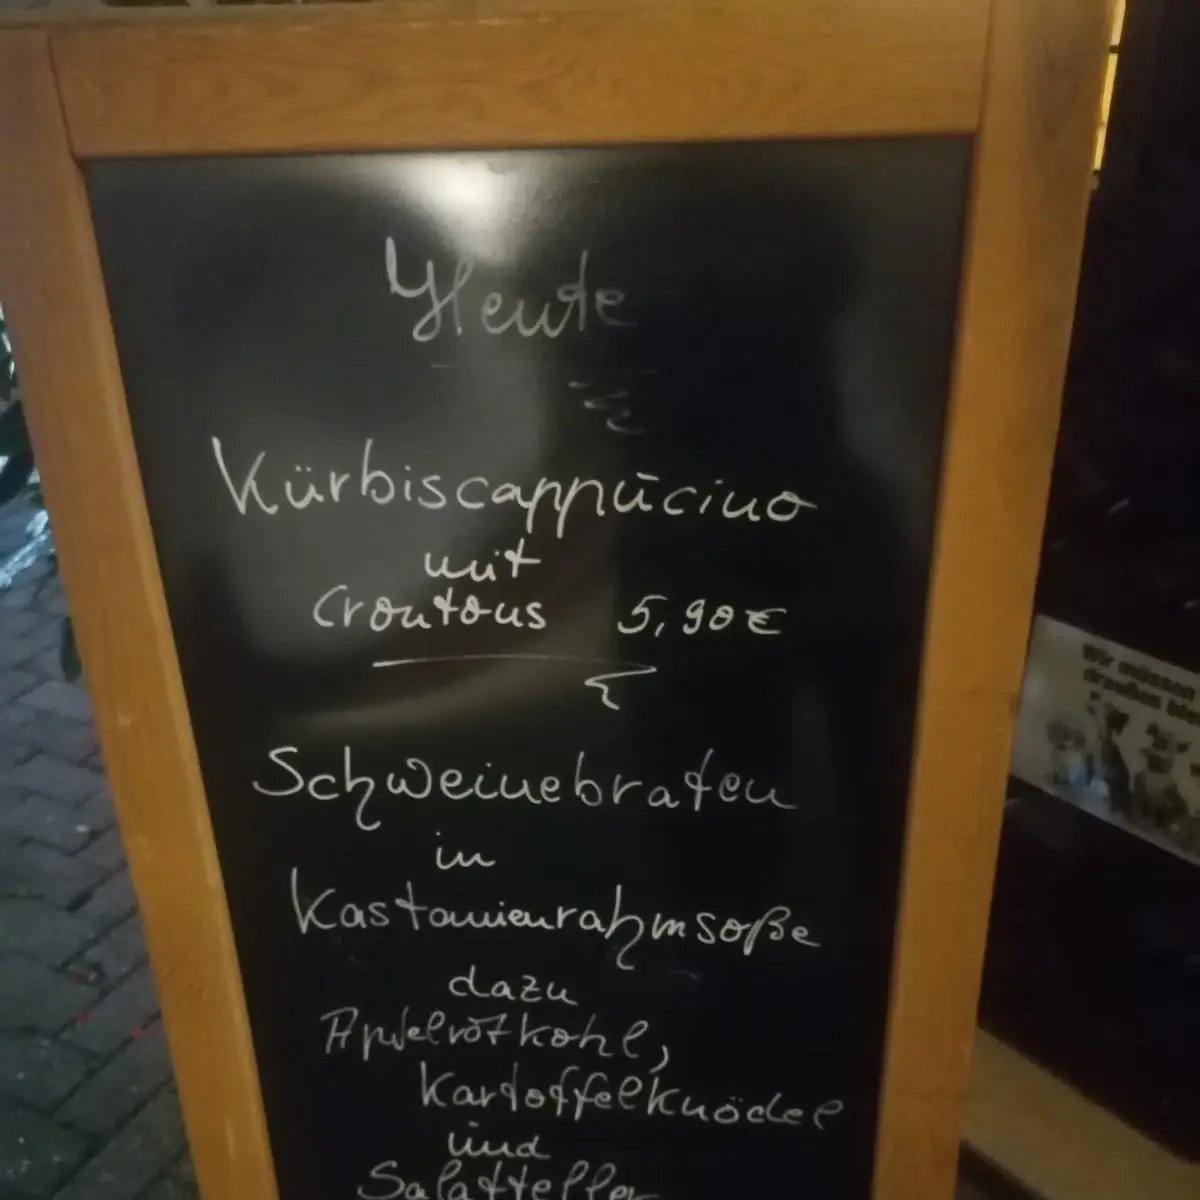 Heute
Kürbiscappucino
mit
Croutous 5,90€
Schweinebraten
in
Kastanienrahmsoße
dazu
Apfelrotkohl,
Kartoffelknödel
und
Salatteller
Wir müssen
draußen